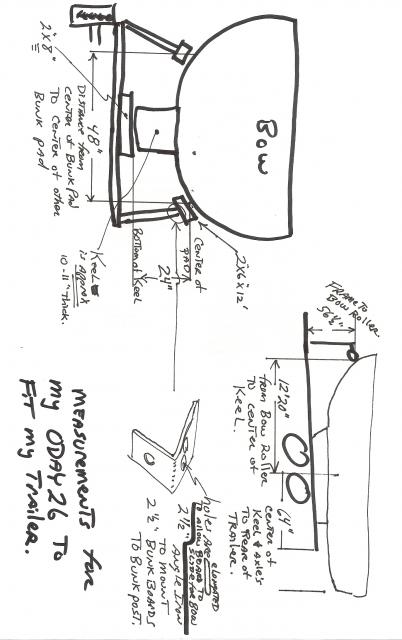 Bow
2"x8"
48"
Distance from
center of Bunk Pad
To center of other
Bunk pad
Keel
is Approx
10-11" Thick.
Bottom of Keel
24"
Center of
PAD
2"x6"x12'
FRAME TO
Bow Roller
56½"
12'20"
From Bow Roller
To center of
Keel.
64"
center of
Keel & Axle's
To Rear of
TRAILER.
holes Are elongated
To allow BOARD to
SLIDE for BOW
2½" Angle Iron
To mount
2½" Bunk Boards
To Bunk post.
MEASUREMENTS for
my ODAY 26 To
Fit my Trailer.